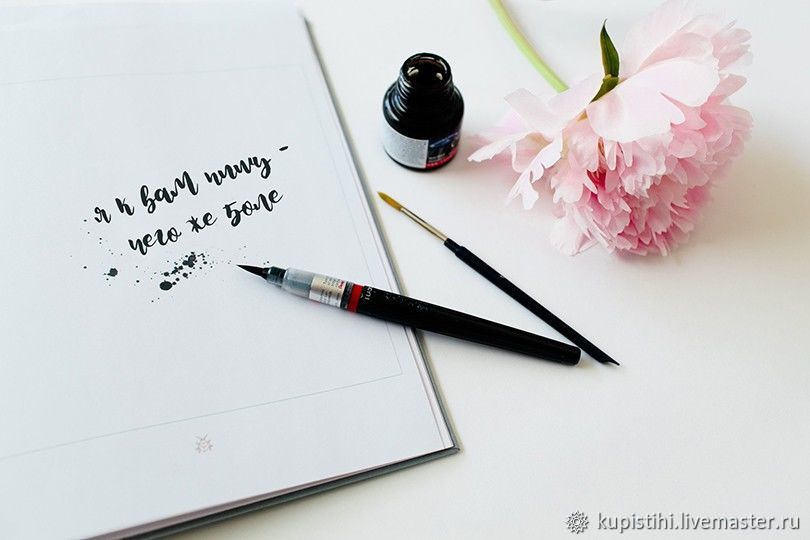 я к вам пишу -
чего же боле
kupistihi.livemaster.ru